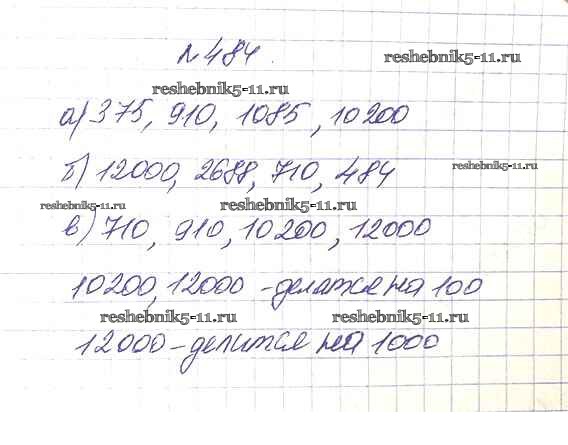 № 484.
reshebnik5-11.ru
reshebnik5-11.ru
а) 375, 910, 1085, 10200
б) 12000, 2688, 710, 484
reshebnik5-11.ru
reshebnik5-11.ru
reshebnik5-11.ru
в) 710, 910, 10200, 12000
10200, 12000 - делятся на 100
reshebnik5-11.ru
reshebnik5-11.ru
12000 - делится на 1000